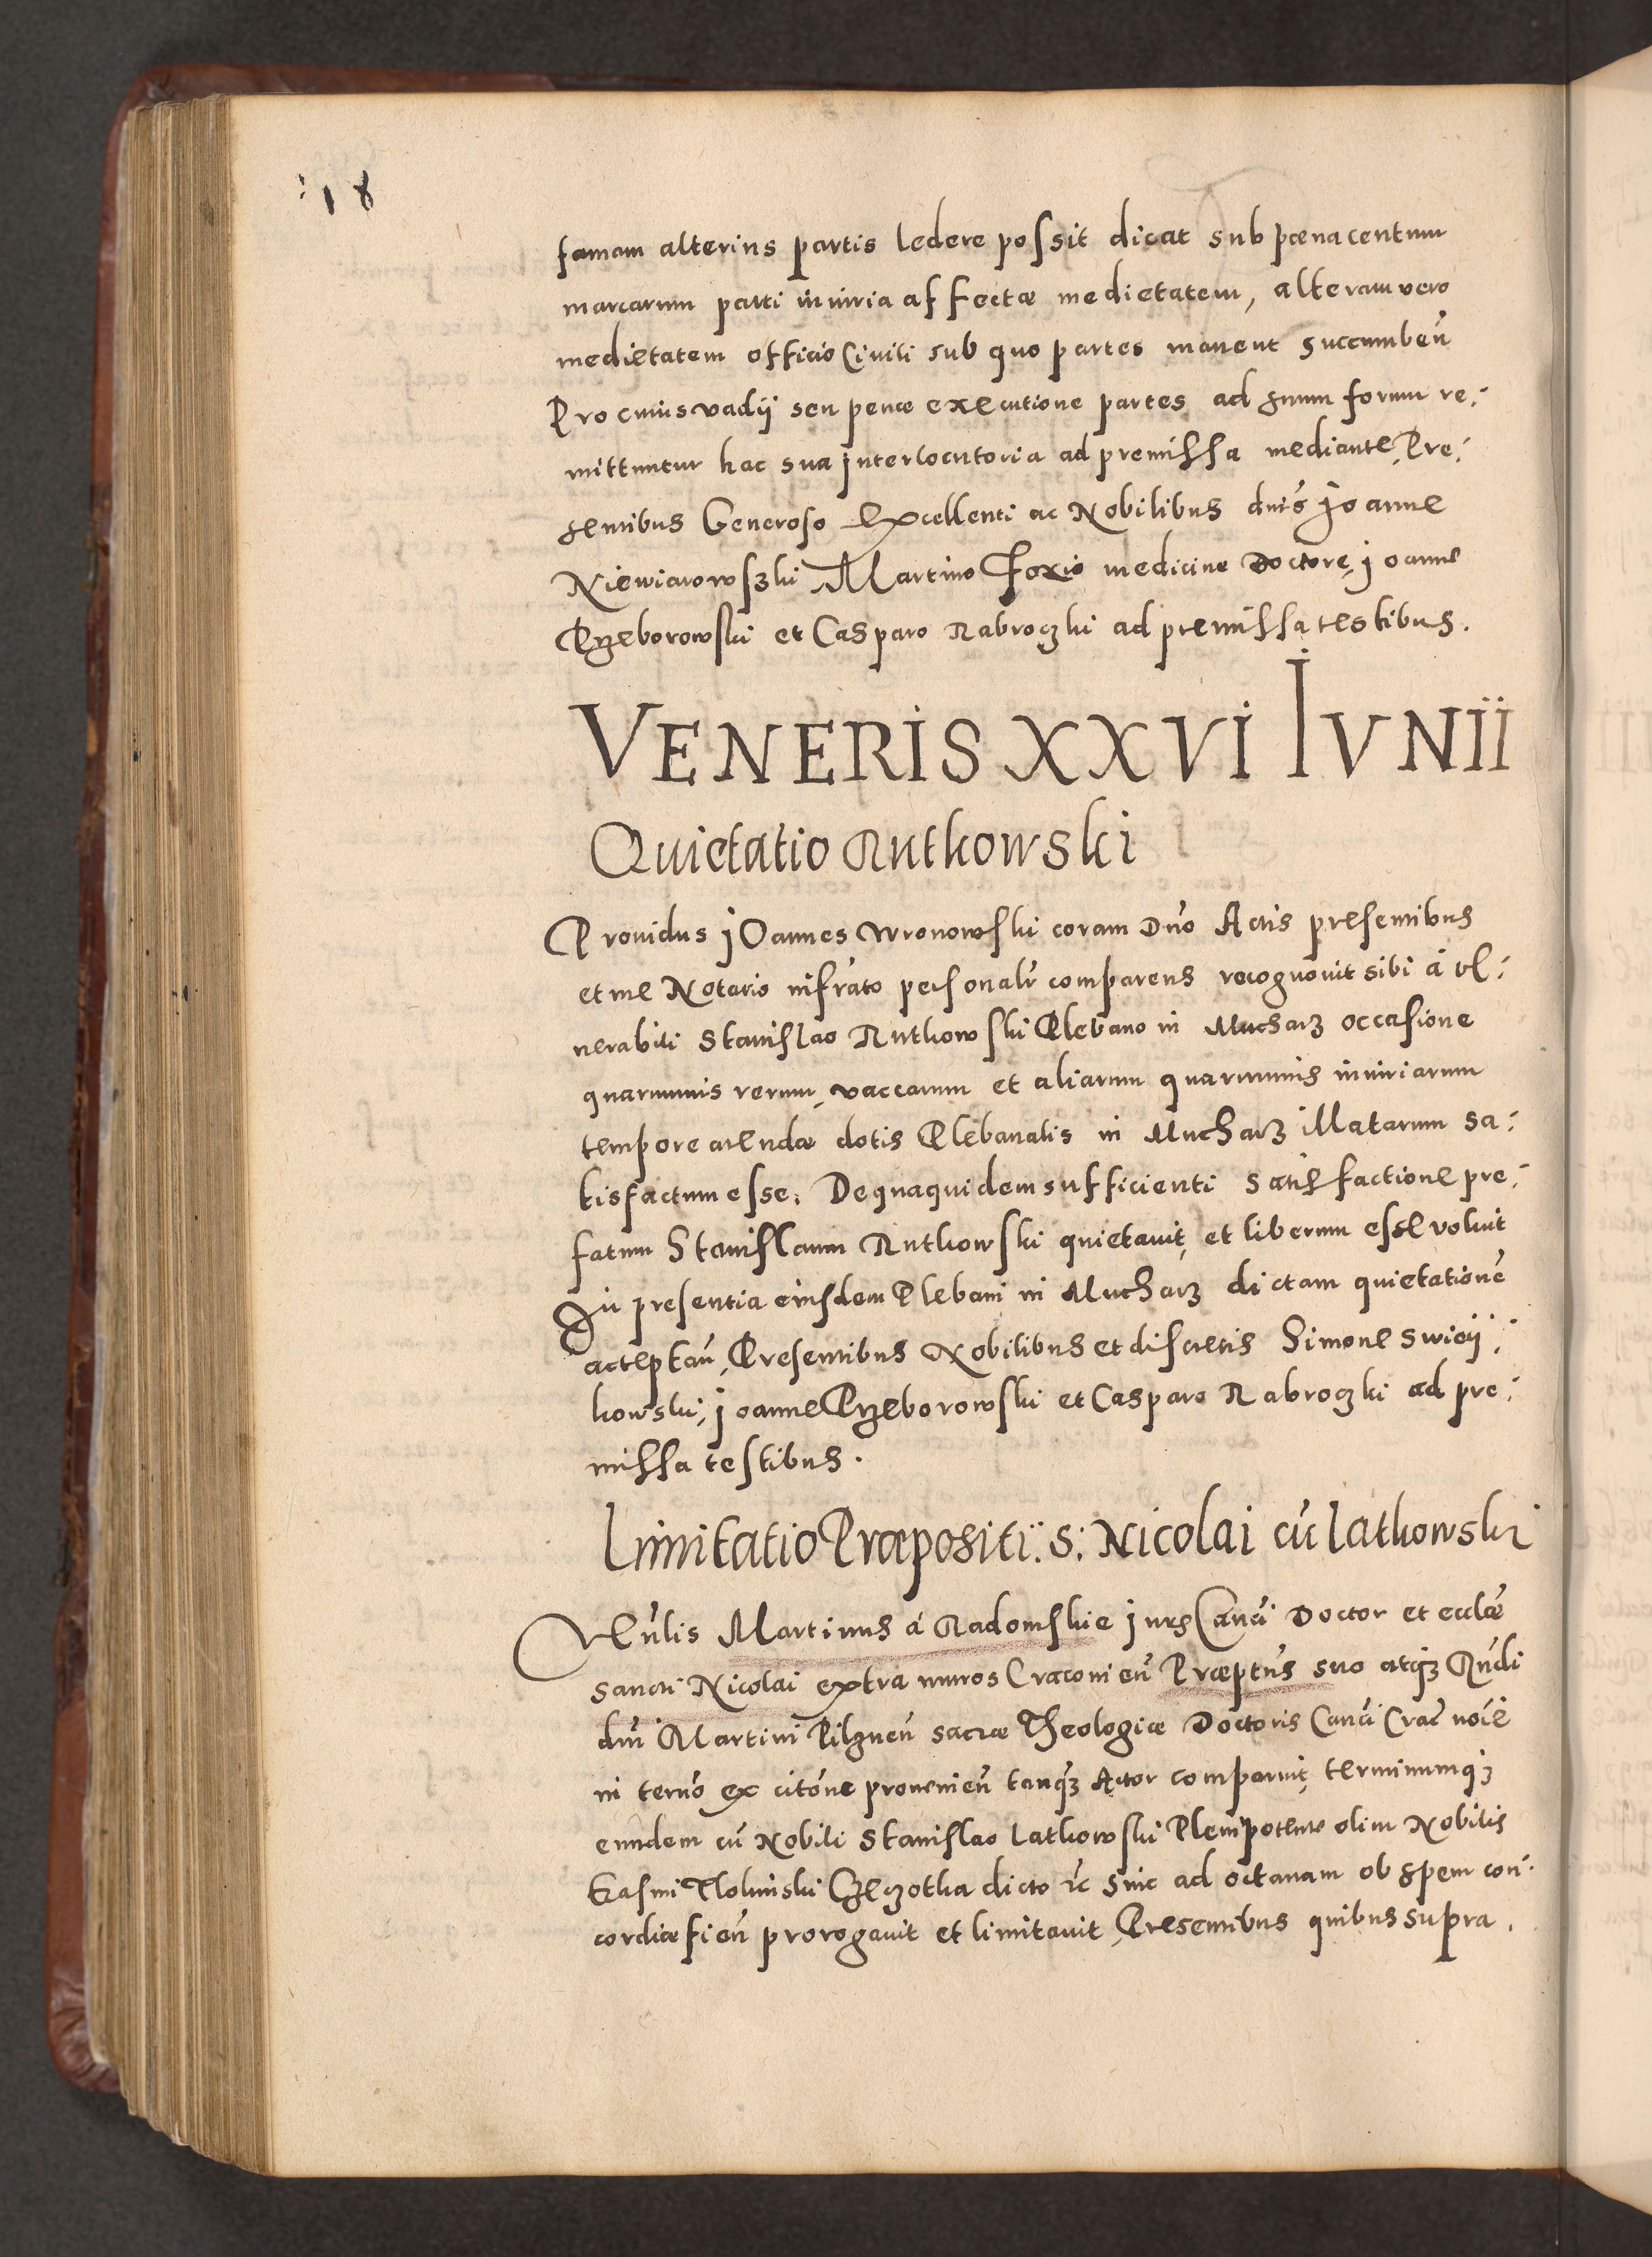 :18
famam alterius partis ledere possit dicat sub pœna centum
marcarum parti iniuria affectæ medietatem, alteram vero
medietatem officio Civili sub quo partes manent succumbeñ
Pro cuius vadij seu penæ executione partes ad suum forum re:
mittuntur hac sua jnterlocutoria ad premissa mediante, Pre:
sentibus Generoso Excellenti ac Nobilibus dnis Joanne
Niewiarowszki Martino Foxio medicine Doctore, joanne
Przeborowski et Casparo Rabroczki ad premissa testibus.
VENERIS XXVI IVNII
Quietatio Rutkowski
Prouidus jOannes Wronowski coram Dno Actis presentibus
et me Notario infrato personalr comparens recognouit sibi á ve:
nerabili Stanislao Rutkowski Plebano in Mucharz occasione
quarumuis rerum, vaccarum et aliarum quarumuis iniuriarum
tempore arendæ dotis Plebanalis in Mucharz illatarum sa:
tisfactum esse. De qua quidem sufficienti satisfactione pre:
fatum Stanislaum Rutkowski quietauit, et liberum esse voluit
In presentia eiusdem Plebani in Mucharz dictam quietationẽ
acceptañ, Presentibus Nobilibus et discretis Simone Swiecij:
kowski, joanne Przeborowski et Casparo Rabroczki ad pre:
missa testibus.
Limitatio Præpositi: S: Nicolai cũ Latkowski
Venlis Martinus á Radomskie jures Canci Doctor et ecclæ
sancti Nicolai extra muros Cracouieñ Præptus suo atqz Rndi
dni Martini Pilzneñ sacræ Theologiæ Doctoris Canci Crac noie
in terno ex citone prouenieñ tanqz Actor comparuit, terminumqz
eundem cũ Nobili Stanislao Latkowski Plenipotente olim Nobilis
Erasmi Tlokinski Czeczotka dicto rc sinc ad octauam ob spem con:
cordiæ fieñ prorogauit et limitauit, Presentibus quibus supra.